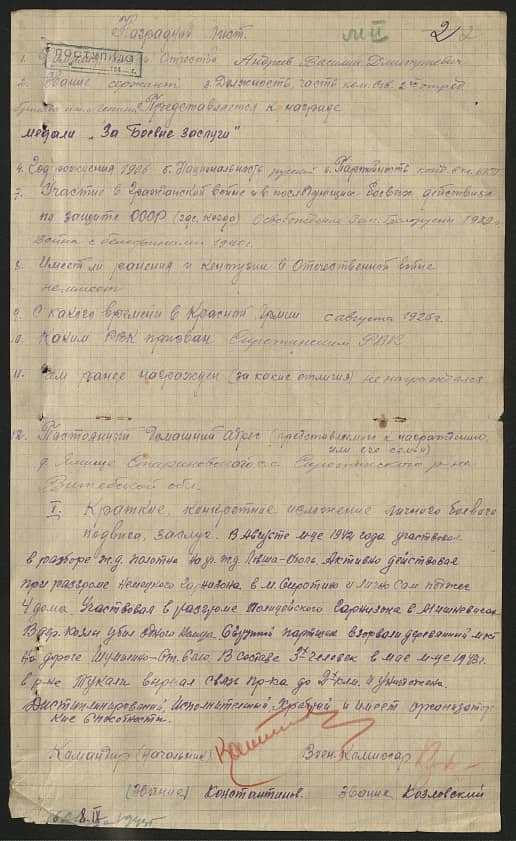 Наградной Лист.
2
ПОСТУПИЛО
1. Отчество Андреев Василий Дмитриевич
2. Звание сержант 3. Должность, часть ком. отд. 2го отряд
Представляется к награде
медали „За Боевые заслуги"
4. Год рождения 1906 5. Национальность русский 6. Партийность
7. Участие в Гражданской войне и в последующих боевых действиях
по защите СССР (где, когда) Освобождение Зап. Белоруссии 1939 г.
война с белофинами 1940 г.
8. Имеет ли ранения и контузии в Отечественной войне
не имеет
9. С какого времени в Красной Армии с августа 1926 г.
10. Каким РВК призван Сиротинским РВК
11. Чем ранее награжден (за какие отличия) не награждался
12. Постоянный домашний адрес (представляемого к награждению
или его семьи)
д. Сиротинского р-на
Витебской обл.
I. Краткие, конкретное изложение личного боевого
подвига, заслуг. В Августе м-це 1942 года участвовал
в разборе ж.д. полотна на ж.д. Активно действовал
при разгроме немецкого гарнизона в м. Сиротино и лично сам поджег
4 дома. Участвовал в разгроме Полицейского гарнизона в Мишневичах
В дер. Козлы убил одного немца. С группой партизан взорвали деревянный мост
на дороге Шумилино- В составе 3х человек в мае м-це 1943 г.
в р-не вырвал связь пр-ка до 2х клм. и уничтожена.
Дисциплинированный, Исполнительный, Храбрый, и имеет организатор
ские способности.
Командир (начальник) Воен. Комиссар
(звание) Константинов. звание Козловский